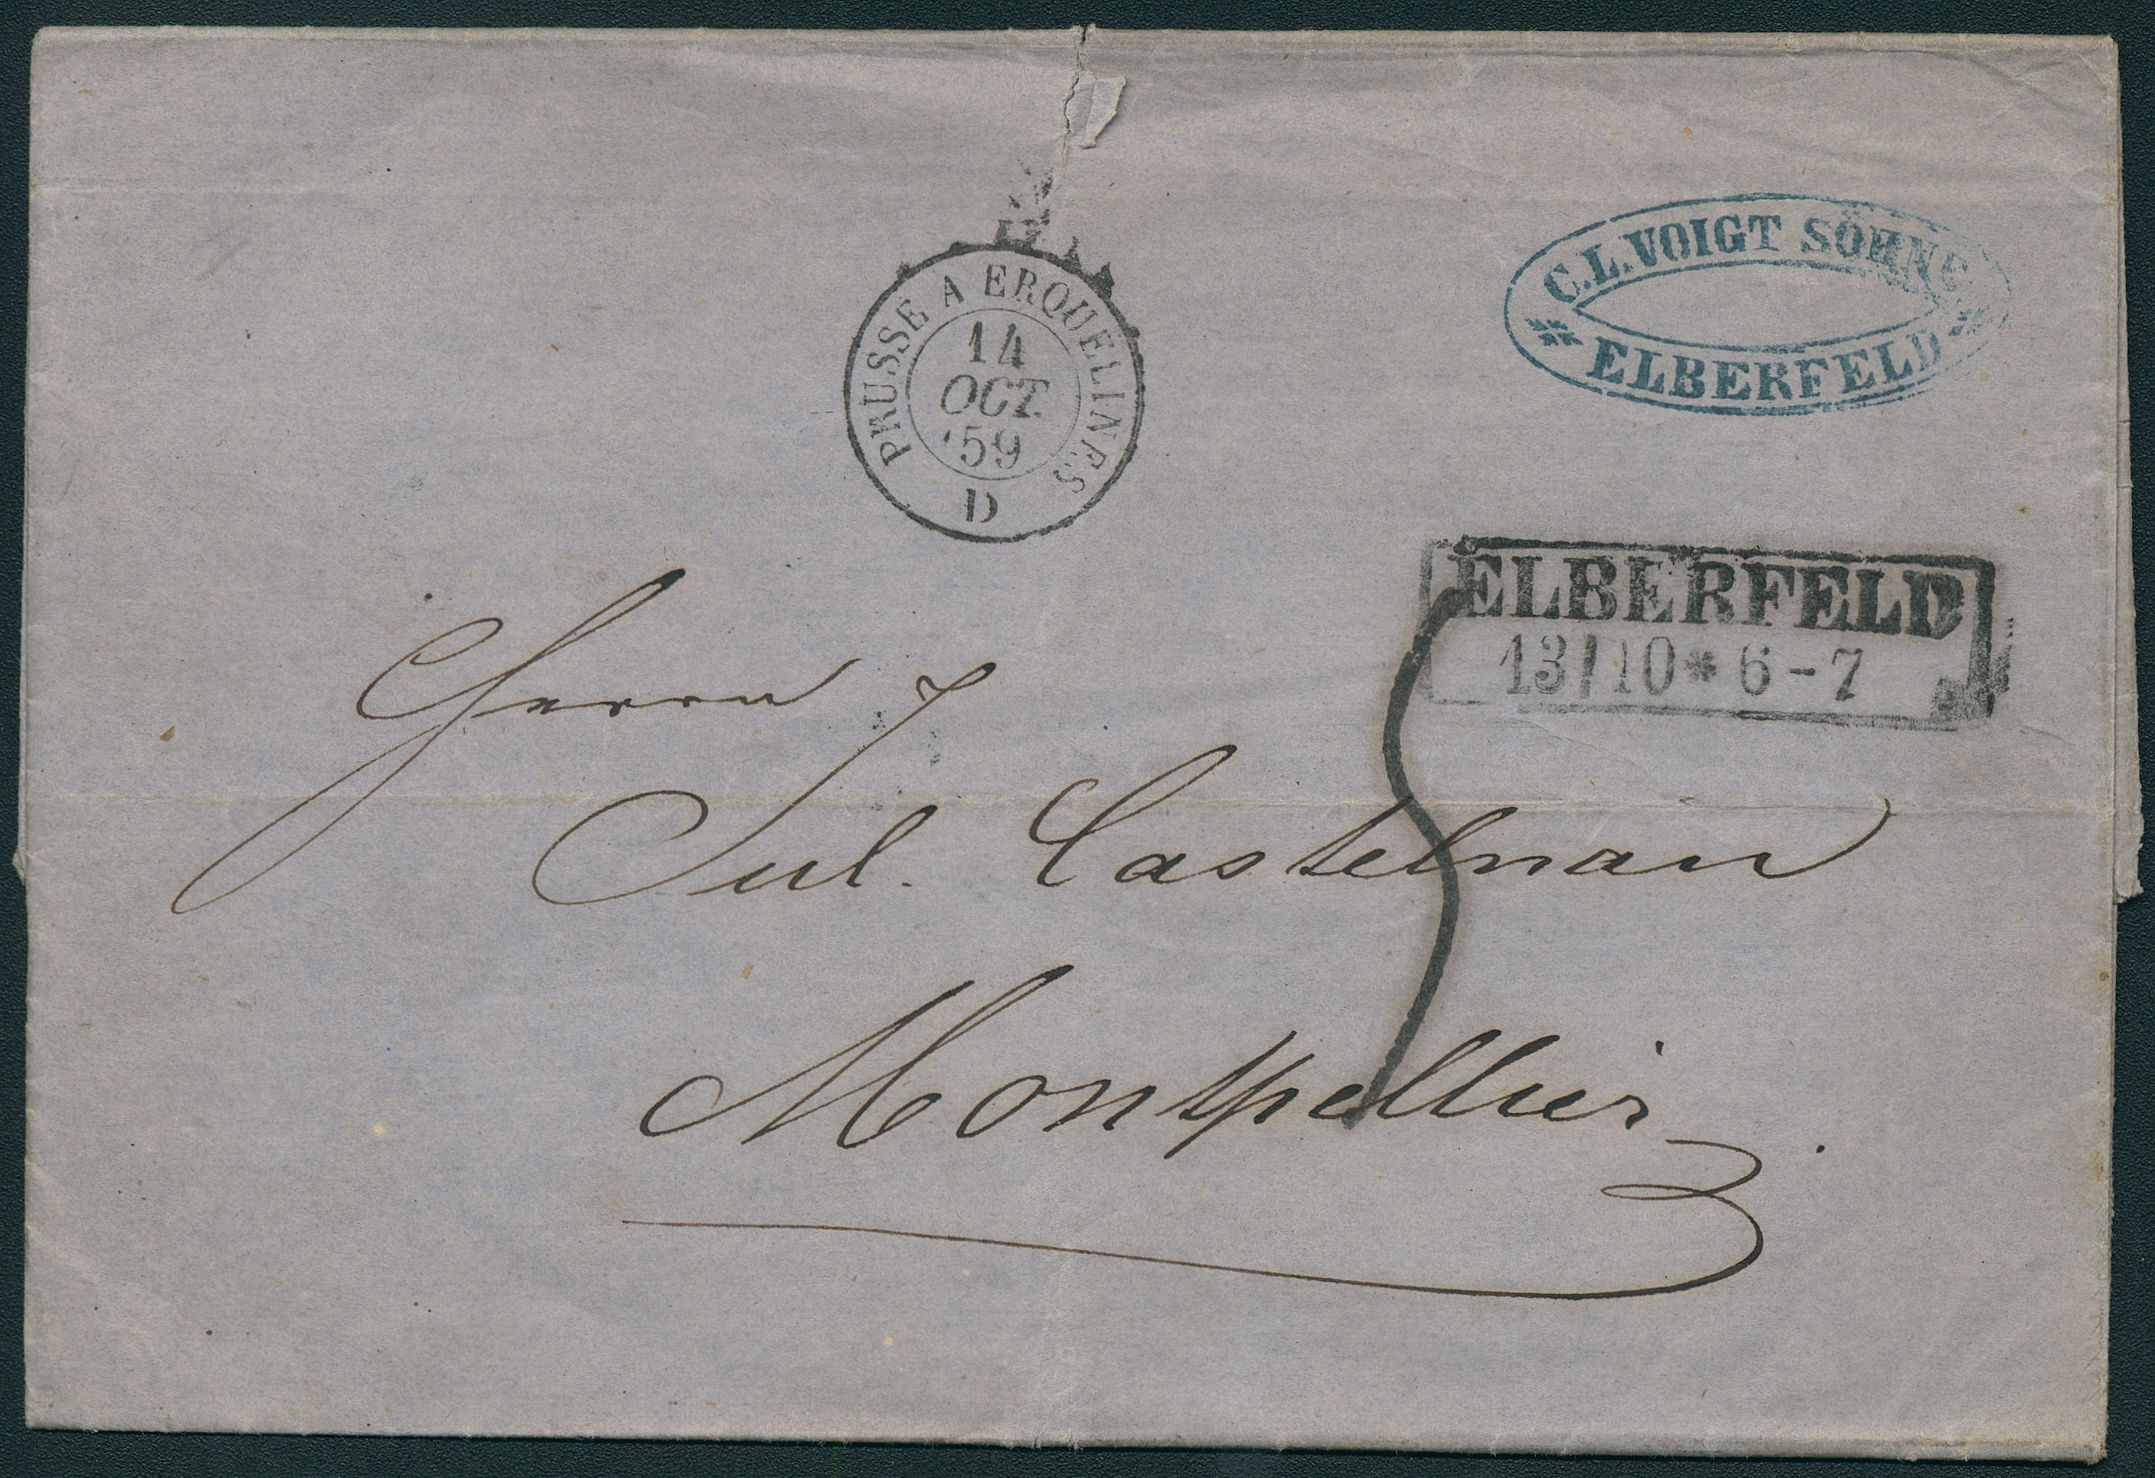 C.L.VOIGT SÖHNE
ELBERFELD
PRUSSE A ERQUELINES
14
OCT.
59
D
ELBERFELD
13/10 * 6-7
Herrn
Jul. Castelnau
Montpellier.